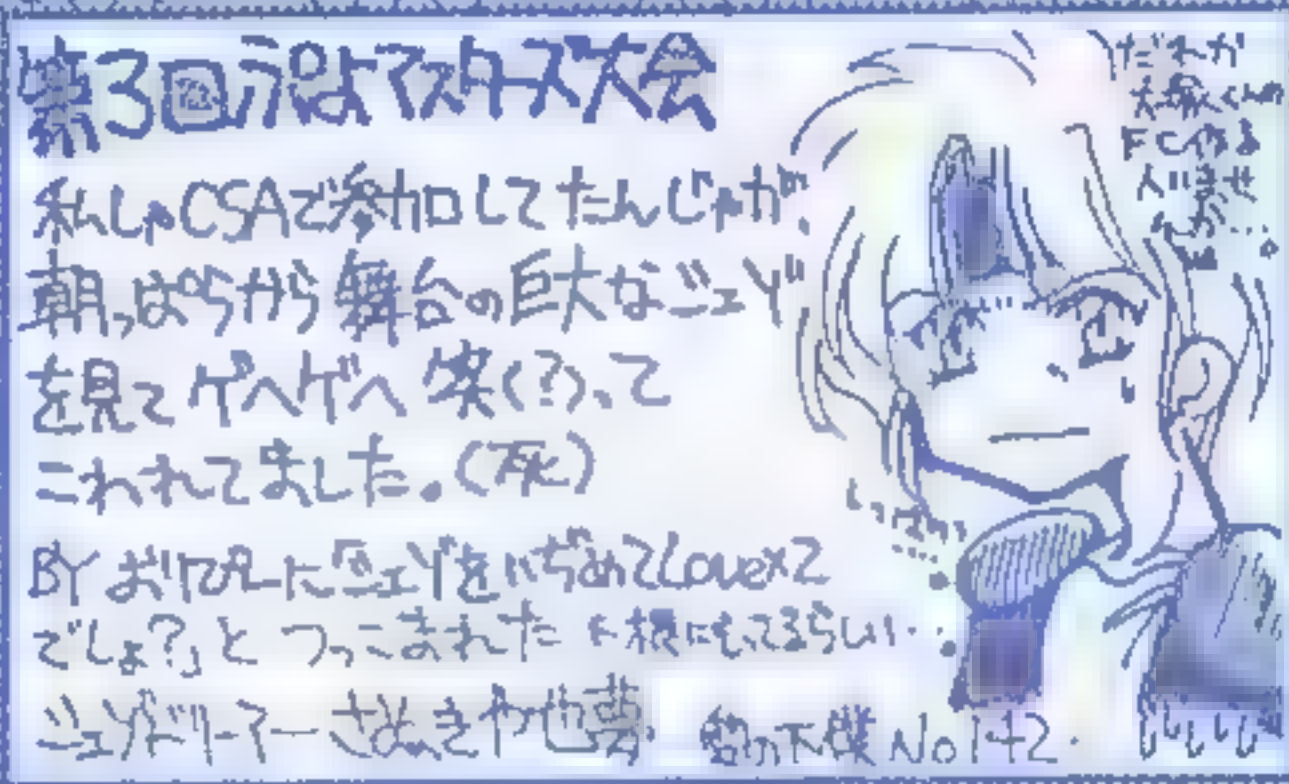 第3回ぷよマスターズ大会
私しゃCSAで参加してたんじゃが、
朝っぱらから舞台の巨大なシェゾ
を見て ゲヘゲヘ 笑(?)って
こわれてました。(死)
BY おりぴーに「シェゾをいぢめてLove×2
でしょ?」と つっこまれた ←根にもってるらしい…
シェゾドリーマー さぬきや也夢 の下僕 No142.
だれか
くんの
FCやる
人いませ
んか…。